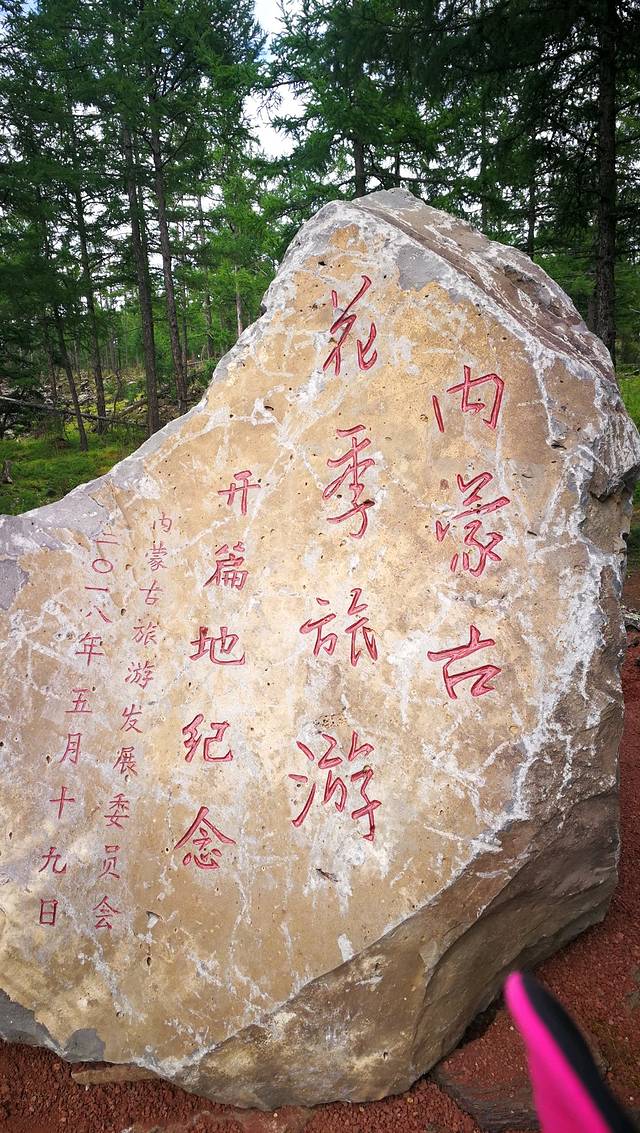 内蒙古
花季旅游
开篇地纪念
内蒙古旅游发展委员会
二〇一八年五月十九日